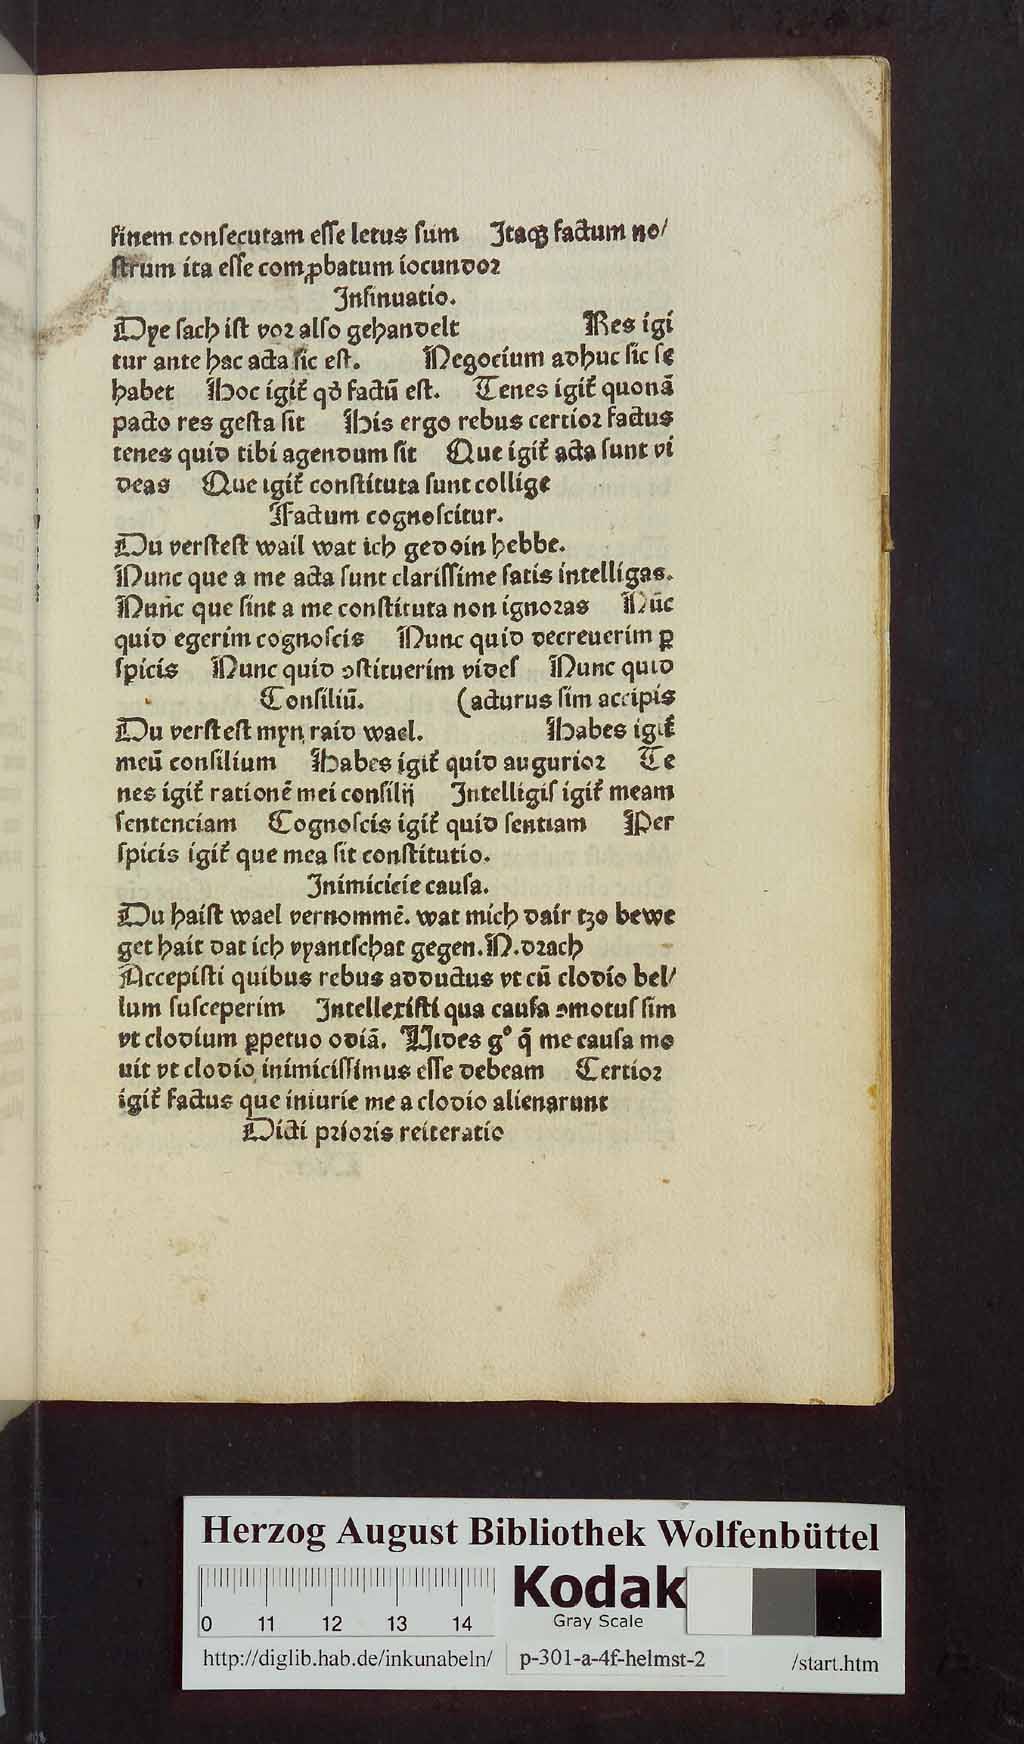 finem conſecutam eſſe letus ſum Itaqꝫ factum no/
ſtrum ita eſſe comꝓbatum iocundoꝛ
Inſinuatio.
Dye ſach iſt voꝛ alſo gehandelt Res igi
tur ante hac acta ſic eſt. Negocium adhuc ſic ſe
habet Hoc igit̃ qđ factū eſt. Tenes igit̃ quonã
pacto res geſta ſit His ergo rebus certioꝛ factus
tenes quid tibi agendum ſit Que igit̃ acta ſunt vi
deas Que igit̃ conſtituta ſunt collige
Factum cognoſcitur.
Du verſteſt wail wat ich gedoin hebbe.
Nunc que a me acta ſunt clariſſime ſatis intelligas.
Nunc que ſint a me conſtituta non ignoꝛas Nūc
quid egerim cognoſcis Nunc quid decreuerim ꝑ
ſpicis Nunc quid ↄſtituerim videſ Nunc quid
Conſiliū. (acturus ſim accipis
Du verſteſt myn raid wael. Habes igit̃
meū conſilium Habes igit̃ quid augurioꝛ Te
nes igit̃ rationē mei conſilij Intelligiſ igit̃ meam
ſentenciam Cognoſcis igit̃ quid ſentiam Per
ſpicis igit̃ que mea ſit conſtitutio.
Inimicicie cauſa.
Du haiſt wael vernommē. wat mich dair tzo bewe
get hait dat ich vyantſchat gegen.N.dꝛach
Accepiſti quibus rebus adductus vt cū clodio bel/
lum ſuſceperim Intellexiſti qua cauſa ↄmotuſ ſim
vt clodium ꝑpetuo odiā. Uides gͦ q̄ me cauſa mo
uit vt clodio inimiciſſimus eſſe debeam Certioꝛ
igit̃ factus que iniurie me a clodio alienarunt
Dicti pꝛioꝛis reiteratio
Herzog August Bibliothek Wolfenbüttel
0 11 12 13 14
Kodak
Gray Scale
http://diglib.hab.de/inkunabeln/ p-301-a-4f-helmst-2 /start.htm